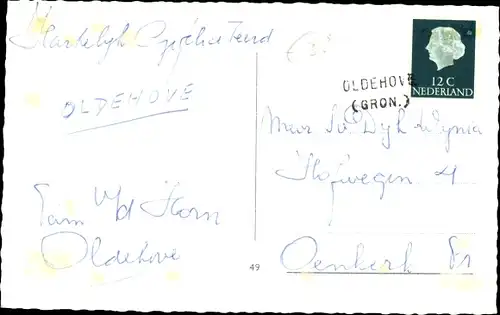 Hartelijk Gefeliciteerd
OLDEHOVE
Fam v/d Horn
Oldehove
49
12 C
NEDERLAND
OLDEHOVE
(GRON.)
Dijkstra
Hofwegen 4
Oenkerk Fr